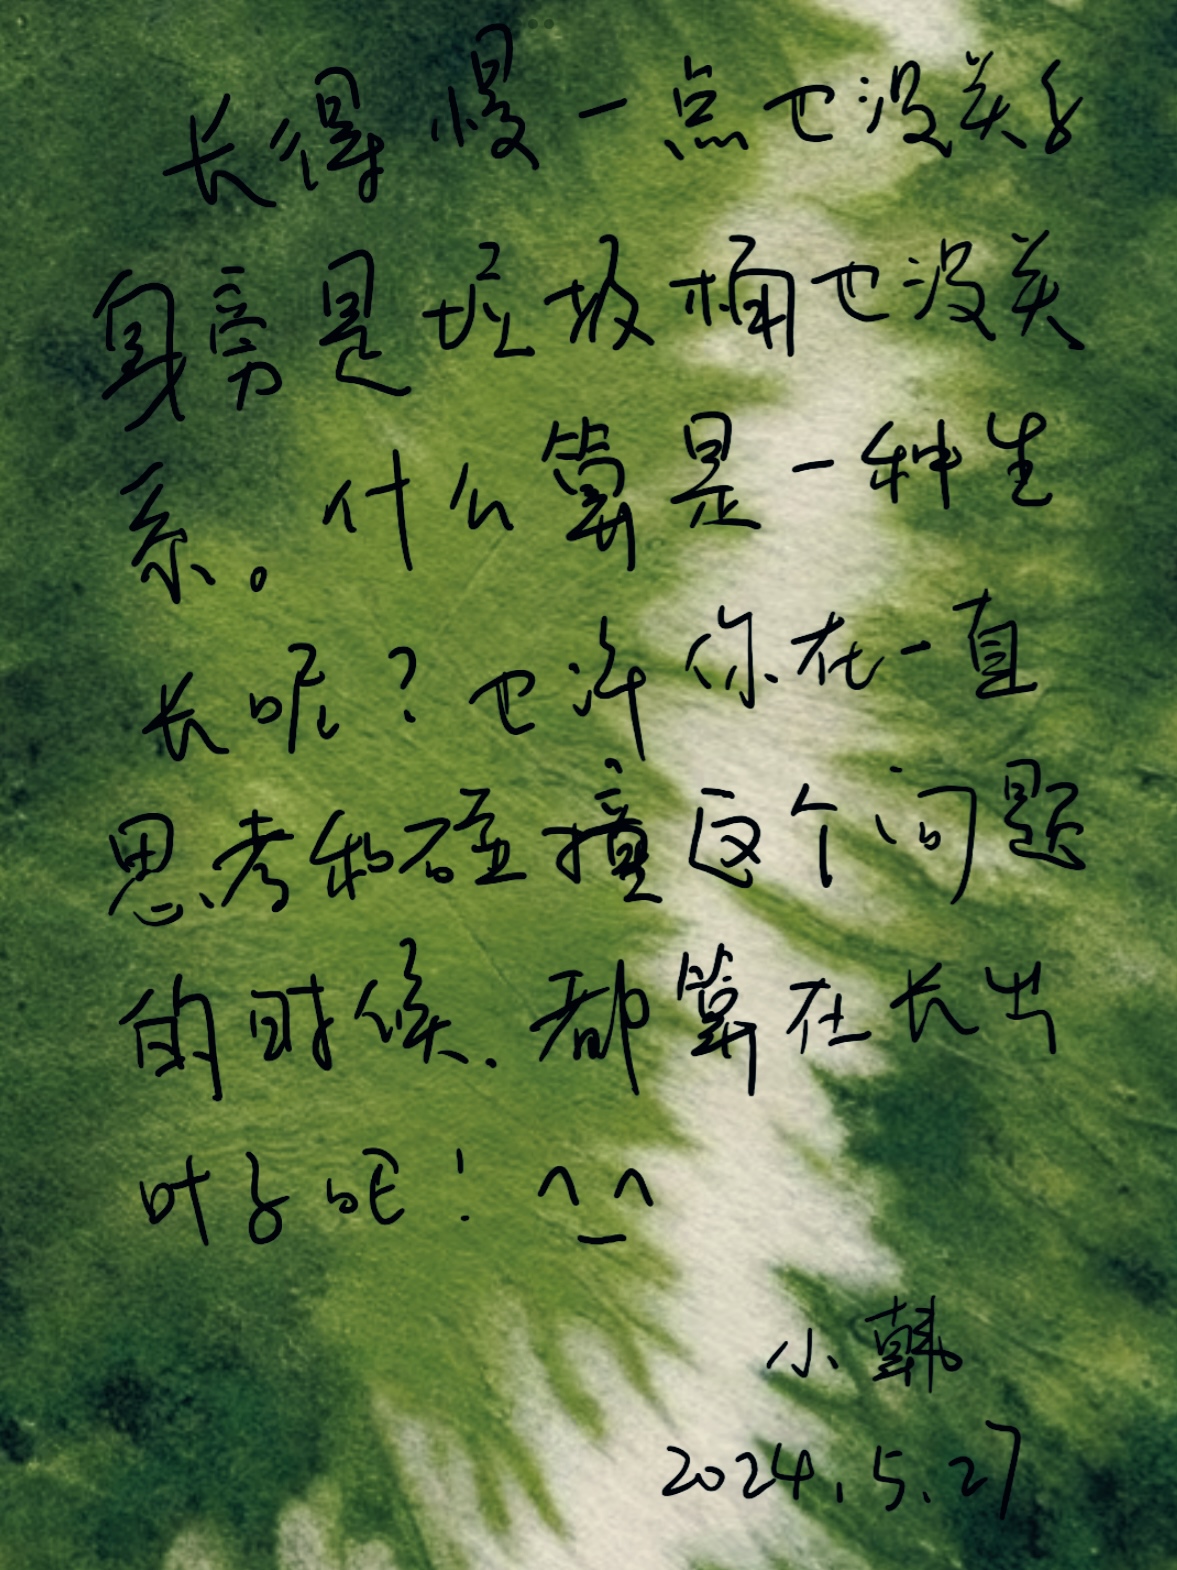 长得慢一点也没关系
身旁是垃圾桶也没关
系。什么算是一种生
长呢？也许你在一直
思考和碰撞这个问题
的时候、都算在长出
叶子吧！^_^
小韩
2024.5.27